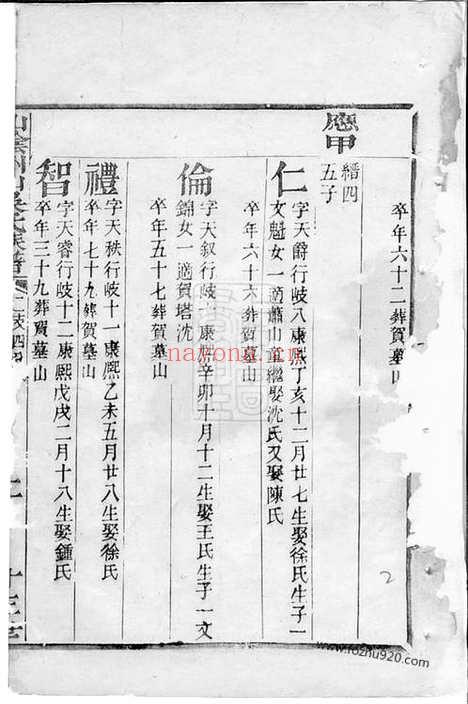 卒年六十二葬賀墓山
應甲
縉四
五子
仁
字天爵行岐八康熙丁亥十二月廿七生娶徐氏生子一
文魁女一適蕭山童繼娶沈氏又娶陳氏
卒年六十六葬賀墓山
倫
字天叙行岐康熙辛卯十月十二生娶王氏生子一文
錦女一適賀塔沈
卒年五十七葬賀墓山
禮
字天秩行岐十一康熙乙未五月廿八生娶徐氏
卒年七十九葬賀墓山
智
字天睿行岐十二康熙戊戌二月十八生娶鍾氏
卒年三十九葬賀墓山
山陰州山吳氏族譜
2
nayona.cn
www.fozhu920.com